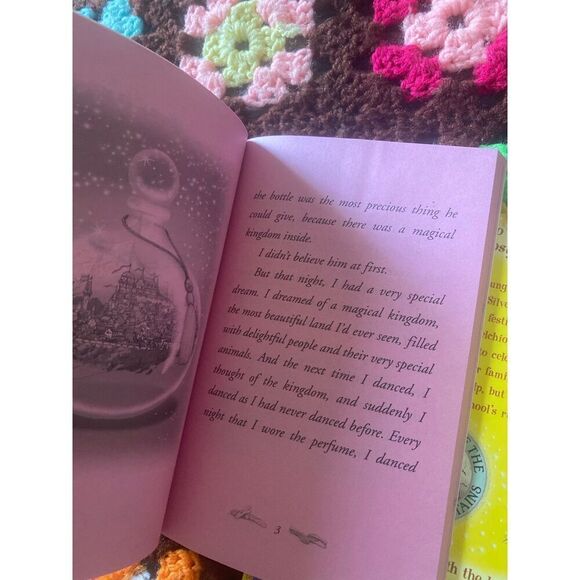 the bottle was the most precious thing he
could give, because there was a magical
kingdom inside.
I didn't believe him at first.
But that night, I had a very special
dream. I dreamed of a magical kingdom,
the most beautiful land I'd ever seen, filled
with delightful people and their very special
animals. And the next time I danced, I
thought of the kingdom, and suddenly I
danced as I had never danced before. Every
night that I wore the perfume, I danced
3
Silve
festi
to cel
famil
lp, but
ool's r
THE
TAINS
th the